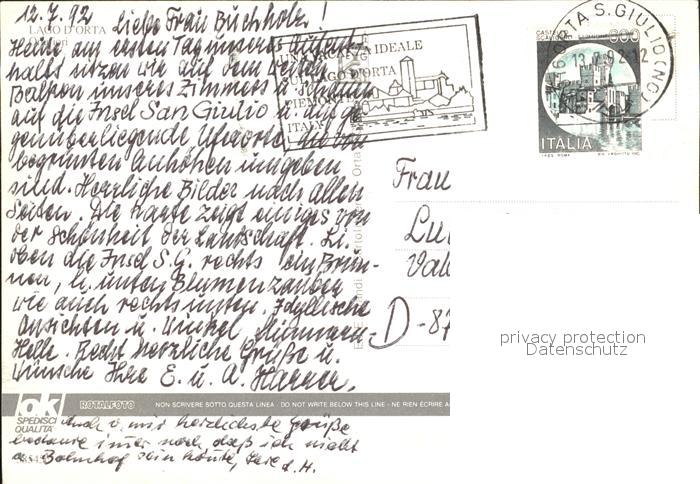 12.7.92 Liebe Frau Buchholz!
LAGO D'ORTA
Heute am ersten Tag unseres Aufent-
halts sitzen wir auf dem
Balkon unseres Zimmers u. schauen
auf die Insel San Giulio u. auf ge-
genüberliegende Uferorte, die von
begrünten Anhöhen umgeben
sind. Herrliche Bilder nach allen
Seiten. Die Karte zeigt einiges von
der Schönheit der Landschaft. Li.
oben die Insel S.G. rechts ein Brun-
nen, li. unten Blumen
wie auch rechts unten. Idyllische
Ansichten u. Winkel
Recht herzliche Grüße u.
Wünsche Ihre E. u. A.
UNA VACANZA IDEALE
LAGO D'ORTA
PIEMONTE
ITALIA
ORTA S. GIULIO (NO)
13.7.92-12
600
ITALIA
Frau
Lu
Val
D-87
privacy protection
Datenschutz
ok
SPEDISCI
QUALITÀ
ROTALFOTO
NON SCRIVERE SOTTO QUESTA LINEA - DO NOT WRITE BELOW THIS LINE - NE RIEN ÉCRIRE A
Auch v. mir herzlichste Grüße
bedaure immer noch daß ich nicht
a. Bahnhof sein konnte, Ihre d. H.